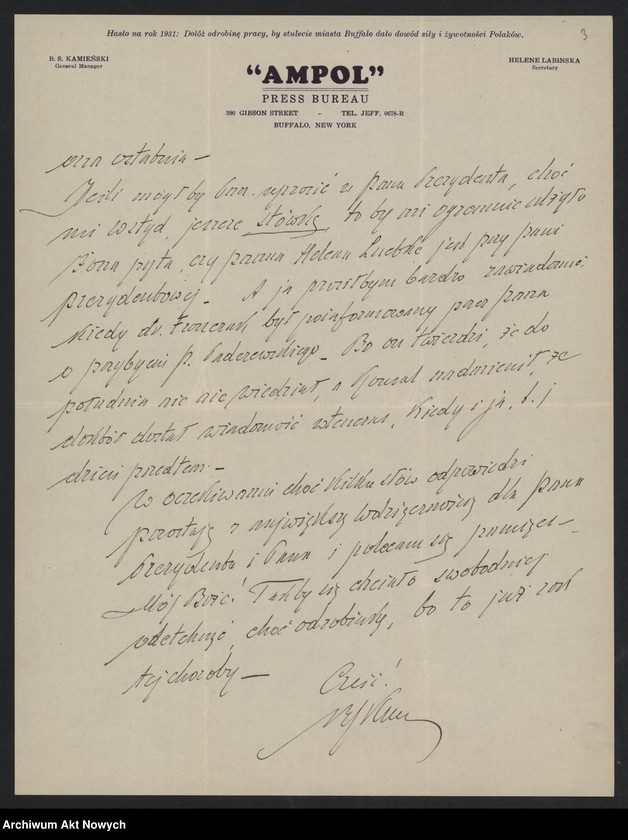 Hasło na rok 1931: Dołóż odrobinę pracy, by stulecie miasta Buffalo dało dowód siły i żywotności Polaków.
3
B. S. KAMIEŃSKI
General Manager
HELENE LABINSKA
Secretary
"AMPOL"
PRESS BUREAU
390 GIBSON STREET - TEL. JEFF. 0678-R
BUFFALO, NEW YORK
Jeśli mógł by Pan uprosić u Pana Prezydenta, choć
mi wstyd, jeszcze słówko, to by mi ogromnie ulżyło
Żona pyta, czy panna Helena jest przy pani
prezydentowej - A ja prosiłbym bardzo zawiadomić,
kiedy dr. był poinformowany przez pana
o przybyciu p. Paderewskiego - Bo on twierdzi, że do
południa nic nie wiedział, a Konsul nadmienił, że
doktór dostał wiadomość wówczas, kiedy i ja, t. j
dzień przedtem. -
W oczekiwaniu choć kilku słów odpowiedzi
pozostaję z największą wdzięcznością dla Pana
Prezydenta i Pana i polecam się pamięci -
Mój Boże! Takby się chciało swobodniej
odetchnąć, choć odrobinkę, bo to już rok
tej choroby -
Cześć!